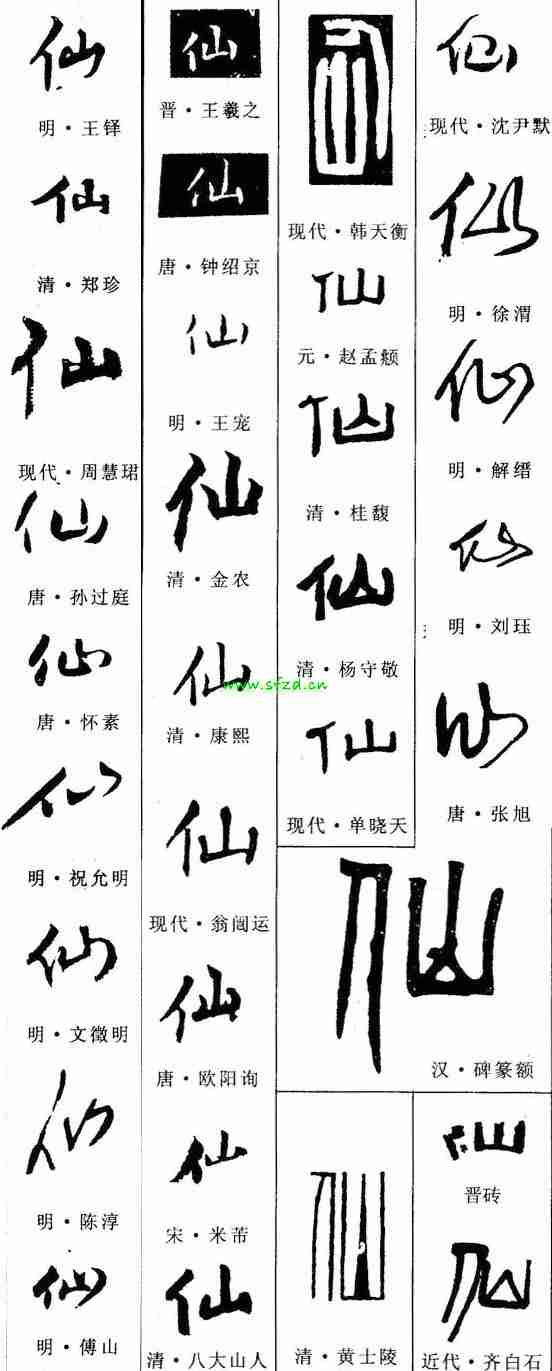 仙
明·王铎
仙
清·郑珍
仙
现代·周慧珺
仙
唐·孙过庭
仙
唐·怀素
仙
明·祝允明
仙
明·文徵明
仙
明·陈淳
仙
明·傅山
仙
晋·王羲之
仙
唐·钟绍京
仙
明·王宠
仙
清·金农
仙
www.sfzd.cn
清·康熙
仙
现代·翁闿运
仙
唐·欧阳询
仙
宋·米芾
仙
清·八大山人
现代·韩天衡
仙
元·赵孟頫
仙
清·桂馥
仙
清·杨守敬
仙
现代·单晓天
仙
现代·沈尹默
仙
明·徐渭
仙
明·解缙
仙
明·刘珏
仙
唐·张旭
仙
汉·碑篆额
仙
清·黄士陵
仙
晋砖
仙
近代·齐白石